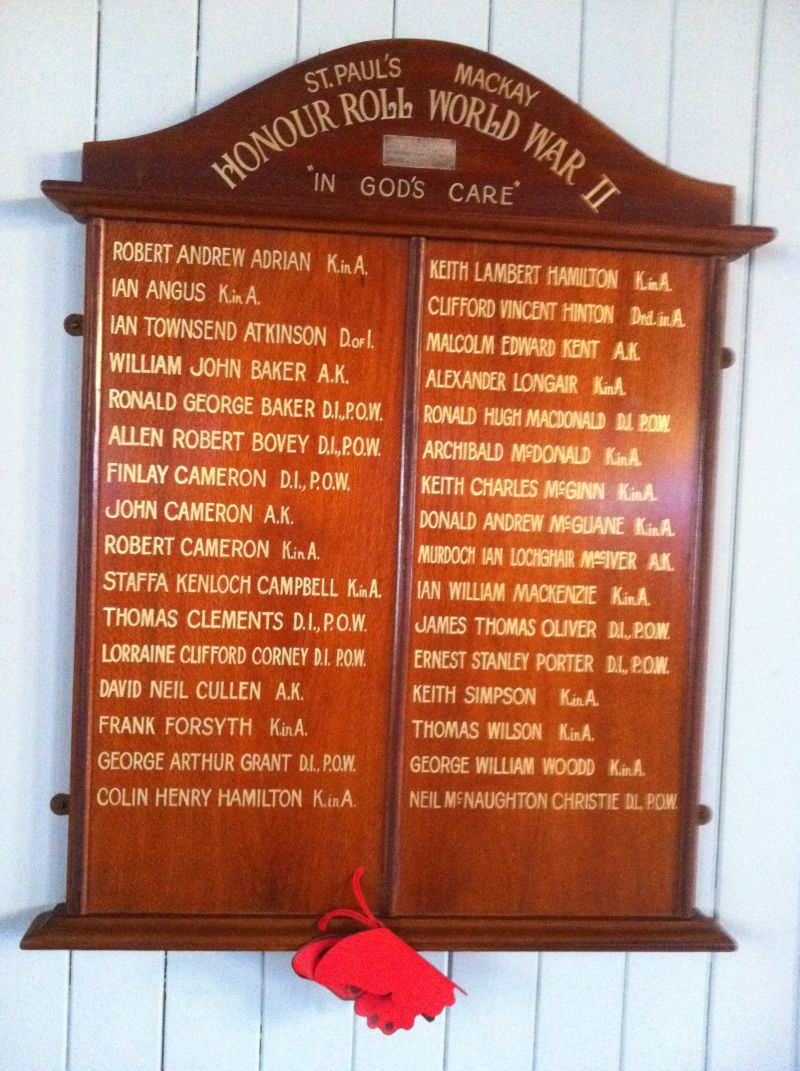 ST. PAUL'S MACKAY
HONOUR ROLL WORLD WAR II
"IN GOD'S CARE"
ROBERT ANDREW ADRIAN K.in A.
IAN ANGUS K.in A.
IAN TOWNSEND ATKINSON D.of I.
WILLIAM JOHN BAKER A.K.
RONALD GEORGE BAKER D.I., P.O.W.
ALLEN ROBERT BOVEY D.I., P.O.W.
FINLAY CAMERON D.I., P.O.W.
JOHN CAMERON A.K.
ROBERT CAMERON K.in A.
STAFFA KENLOCH CAMPBELL K.in A.
THOMAS CLEMENTS D.I., P.O.W.
LORRAINE CLIFFORD CORNEY D.I. P.O.W.
DAVID NEIL CULLEN A.K.
FRANK FORSYTH K.in A.
GEORGE ARTHUR GRANT D.I., P.O.W.
COLIN HENRY HAMILTON K.in A.
KEITH LAMBERT HAMILTON K.in A.
CLIFFORD VINCENT HINTON Drd. in A.
MALCOLM EDWARD KENT A.K.
ALEXANDER LONGAIR K.in A.
RONALD HUGH MACDONALD D.I. P.O.W.
ARCHIBALD McDONALD K.in A.
KEITH CHARLES McGINN K.in A.
DONALD ANDREW McGUANE K.in A.
MURDOCH IAN LOCHGHAIR MacIVER A.K.
IAN WILLIAM MACKENZIE K.in A.
JAMES THOMAS OLIVER D.I., P.O.W.
ERNEST STANLEY PORTER D.I., P.O.W.
KEITH SIMPSON K.in A.
THOMAS WILSON K.in A.
GEORGE WILLIAM WOODD K.in A.
NEIL McNAUGHTON CHRISTIE D.I., P.O.W.